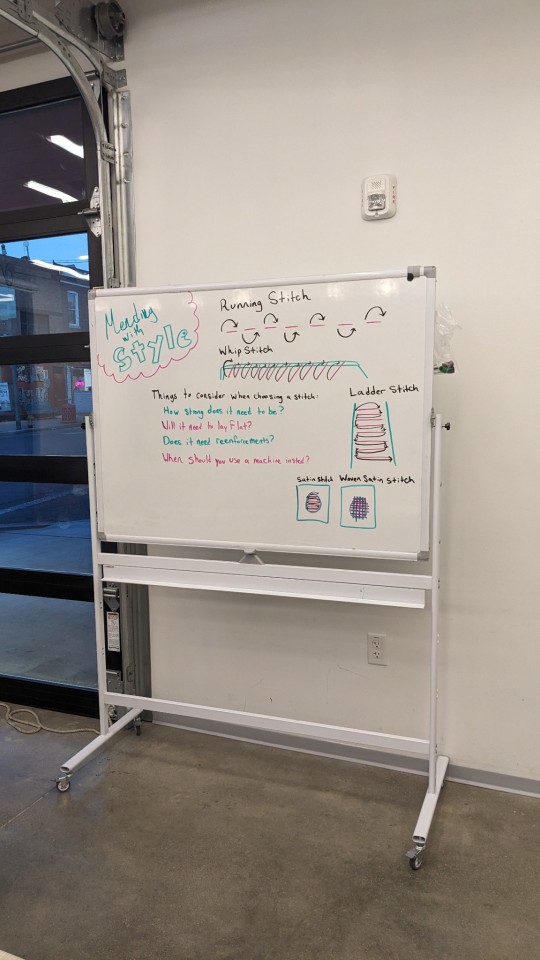 Mending
with
Style
Running Stitch
Whip Stitch
Things to consider when choosing a stitch:
How strong does it need to be?
Will it need to lay flat?
Does it need reenforcements?
When should you use a machine insted?
Ladder Stitch
Satin Stitch
Woven Satin Stitch